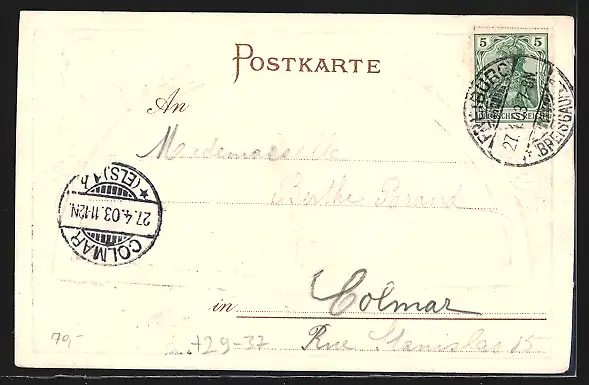 5 5
DEUTSCHES REICH
POSTKARTE
FREIBURG
BREISGAU
27.
An
Mademoiselle
Berthe
COLMAR
27.4.03.11-12N.
*(ELS)*
in Colmar
Rue Stanislas 15
70,-
+29-37